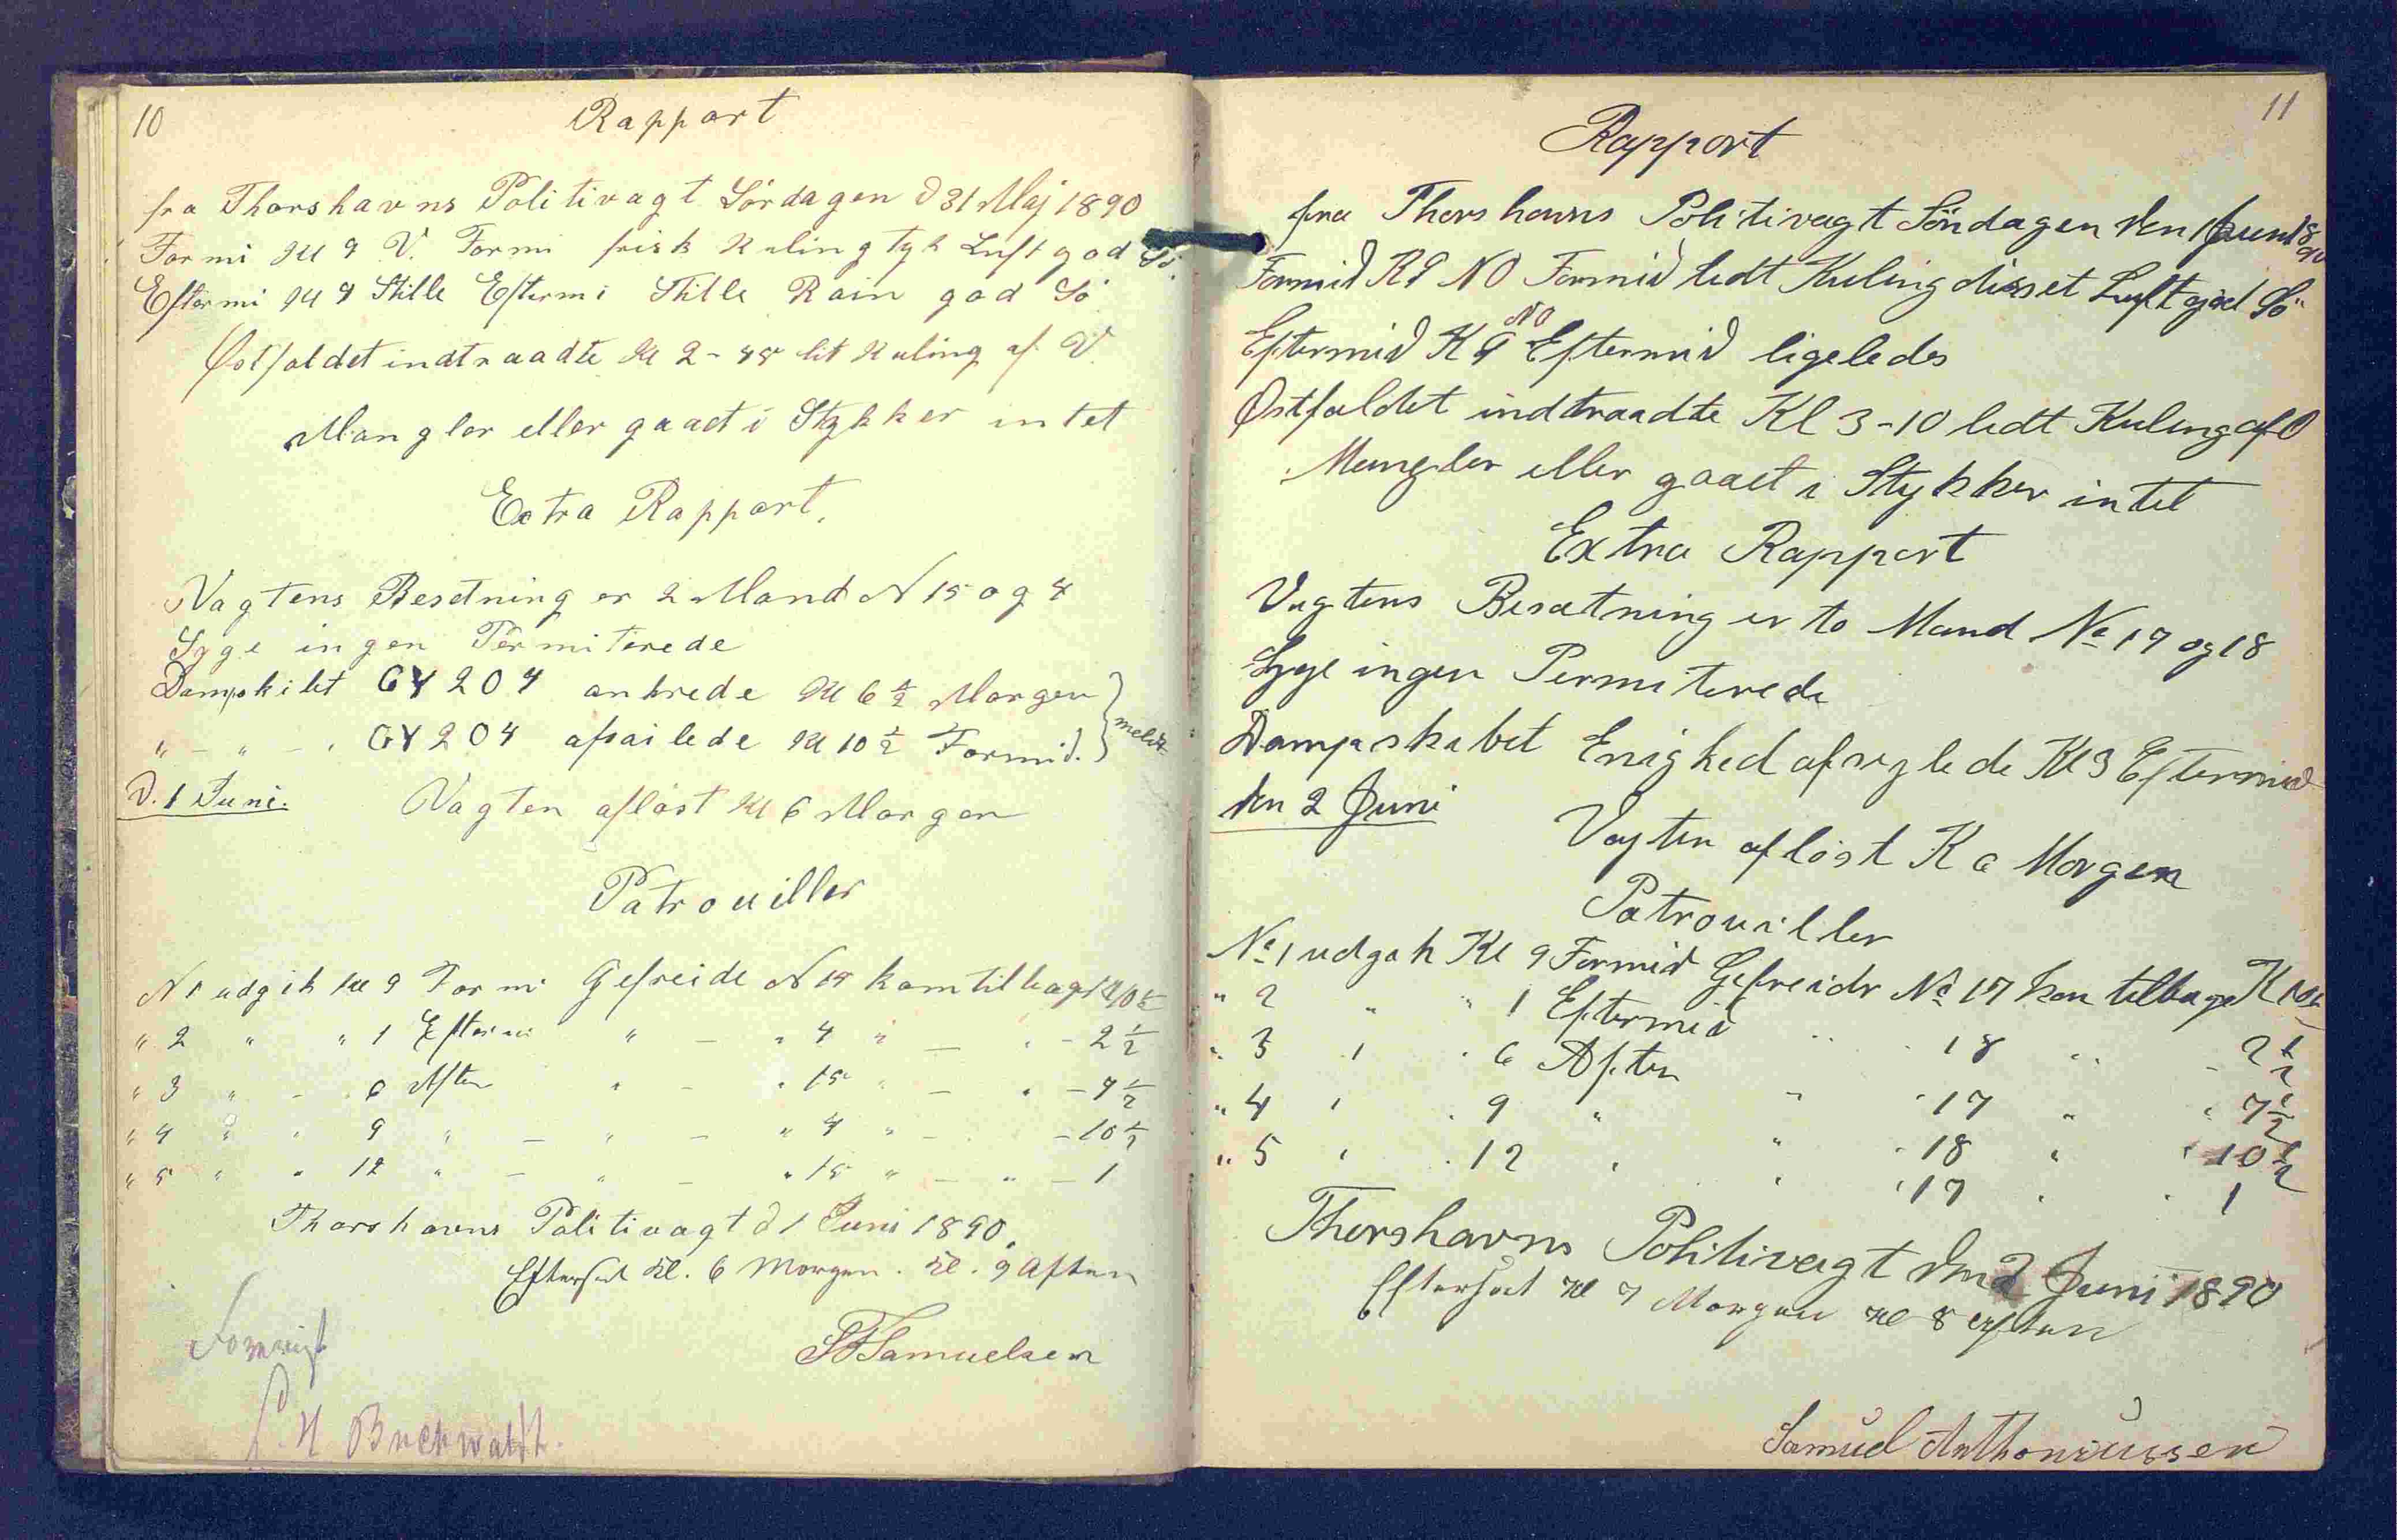 10
Rapport
fra Thorshavns Politivagt Lördagen d 31 Maj 1890
Formi Kl 9 V. Formi frisk Kuling tyk Luft god Sö.
Eftermi Kl 4 Stille Eftermi Stille Rain god Sö
Østfaldet indtraadte Kl 2-45 let Kuling af V.
Mangler eller gaaet i Stykker intet
Extra Rapport.
Vagtens Besetning er 2 Mand N 15 og 4
Syge ingen Permiterede
Dampskibet GY 204 ankrede Kl 6 1/2 Morgen
" - " - " GY 204 afsailede Kl 10 1/2 Formid. } meldt
D. 1 Juni. Vagten aflöst Kl 6 Morgen
Patrouiller
N 1 udgik Kl 9 Formi Gefreide N 15 kom tilbage Kl 10 1/2
" 2 " " 1 Eftermi " - " 4 " - " - 2 1/2
" 3 " - " 6 Aften " - " 15 " - " - 7 1/2
" 4 " " 9 " - " - " 4 " - - 10 1/2
" 5 " " 12 " - " - " 15 " - " - 1
Thorshavns Politivagt d 1 Juni 1890.
Efterset Kl. 6 Morgen. Kl. 9 Aften
Samuelsen
Forevist
Buchwaldt.
11
Rapport
fra Thorshavns Politivagt Söndagen den 1 Juni 1890
Formid K 9 NO Formid ledt Kuling disset Luft god Sö
Eftermid K 4 NO Eftermid ligeledes
Østfaldet indtraadte Kl 3-10 ledt Kuling af O
Mangler eller gaaet i Stykker intet
Extra Rapport
Vagtens Besætning er to Mand No 17 og 18
Syge ingen Permiterede
Dampskibet Enighed afseglede Kl 3 Eftermid
den 2 Juni Vagten aflöst K 6 Morgen
Patrouiller
No 1 udgik Kl 9 Formid Gefreidr No 17 kom tilbage K 10 1/2
" 2 " " 1 Eftermid " " 18 " " 2 1/2
" 3 " " 6 Aften " " 17 " " 7 1/2
" 4 " " 9 " " " 18 " " 10 1/2
" 5 " " 12 " " " 17 " " 1
Thorshavns Politivagt den 2 Juni 1890
Efterset Kl 7 Morgen Kl 8 Aften
Samuel Anthoniussen